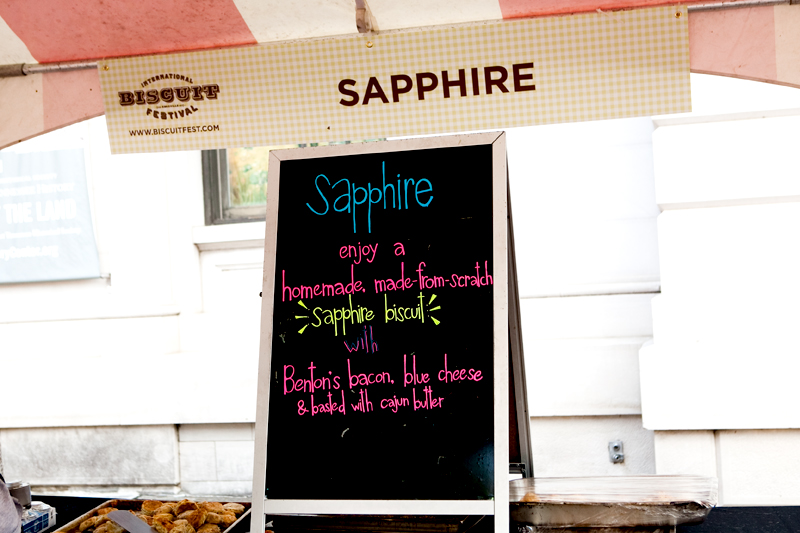 INTERNATIONAL
BISCUIT
FESTIVAL
WWW.BISCUITFEST.COM
SAPPHIRE
sapphire
enjoy a
homemade, made-from-scratch
sapphire biscuit
with
Benton's bacon, blue cheese
& basted with cajun butter
THE LAND